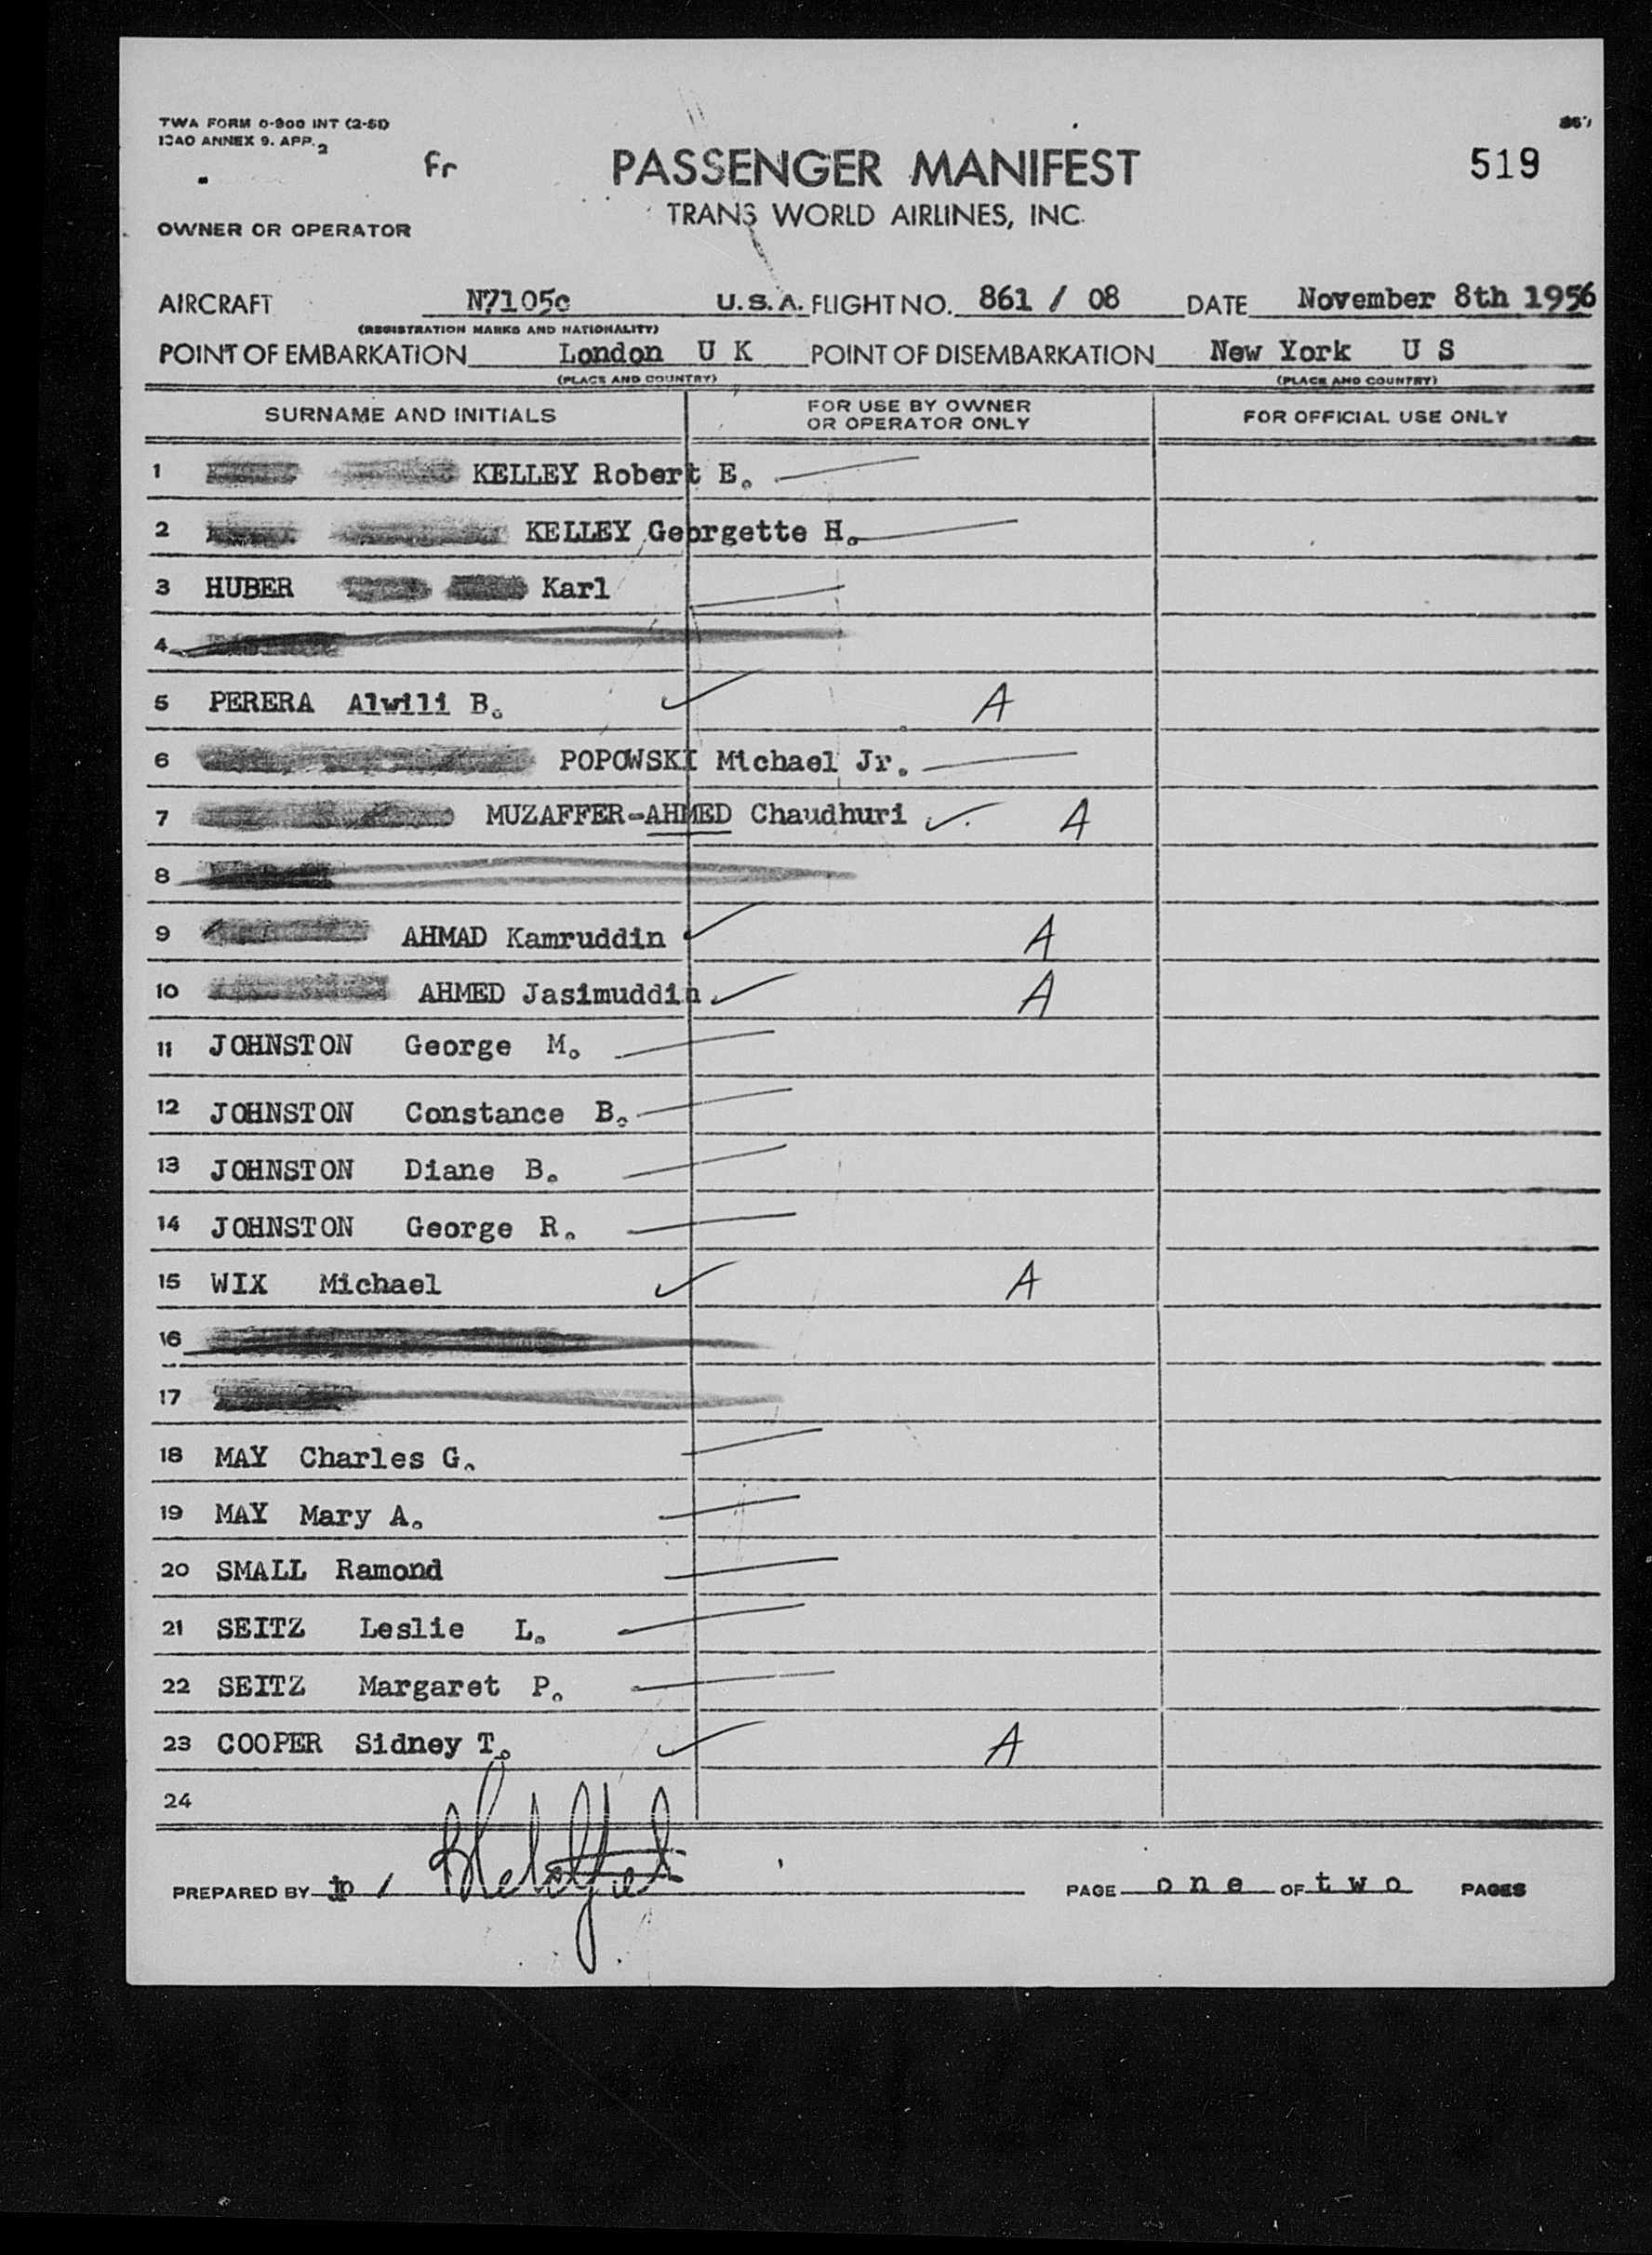 TWA FORM 0-900 INT (2-51)
ICAO ANNEX 9. APP. 2
Fr
PASSENGER MANIFEST
519
TRANS WORLD AIRLINES, INC.
OWNER OR OPERATOR
AIRCRAFT N7105c U.S.A. FLIGHT NO. 861 / 08 DATE November 8th 1956
(REGISTRATION MARKS AND NATIONALITY)
POINT OF EMBARKATION London U K POINT OF DISEMBARKATION New York U S
(PLACE AND COUNTRY) (PLACE AND COUNTRY)
SURNAME AND INITIALS FOR USE BY OWNER OR OPERATOR ONLY FOR OFFICIAL USE ONLY
1 KELLEY Robert E.
2 KELLEY Georgette H.
3 HUBER Karl
4
5 PERERA Alwili B. A
6 POPOWSKI Michael Jr.
7 MUZAFFER-AHMED Chaudhuri A
8
9 AHMAD Kamruddin A
10 AHMED Jasimuddin A
11 JOHNSTON George M.
12 JOHNSTON Constance B.
13 JOHNSTON Diane B.
14 JOHNSTON George R.
15 WIX Michael A
16
17
18 MAY Charles G.
19 MAY Mary A.
20 SMALL Ramond
21 SEITZ Leslie L.
22 SEITZ Margaret P.
23 COOPER Sidney T. A
24
PREPARED BY jp / PAGE one OF two PAGES